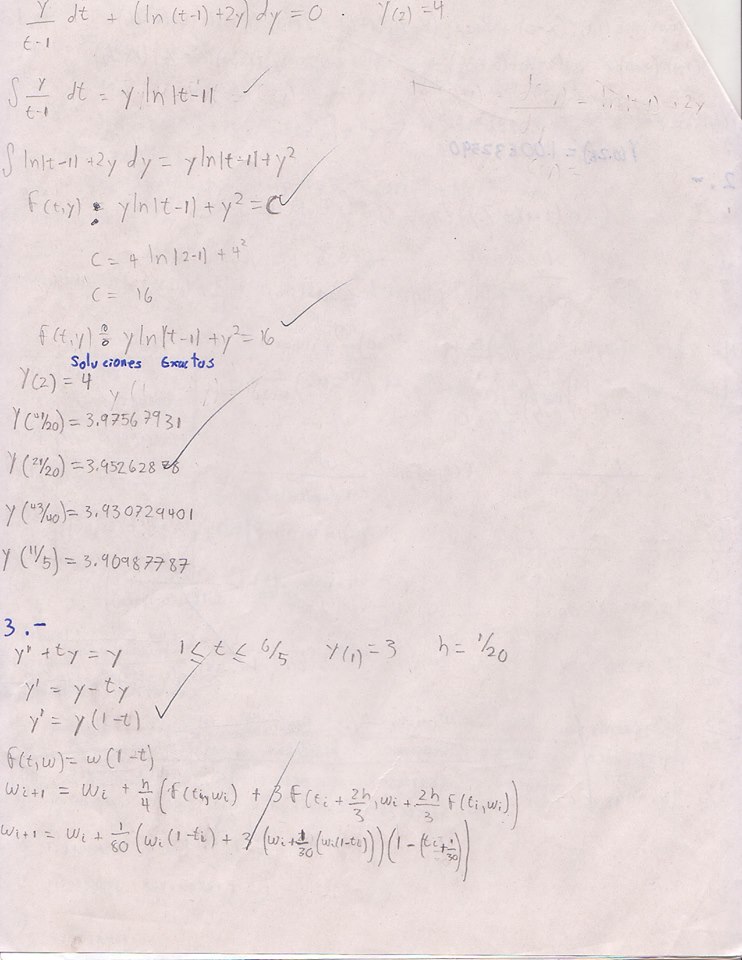 y/(t-1) dt + (ln(t-1)+2y) dy = 0 . y(2) = 4
∫ y/(t-1) dt = y ln|t-1|
∫ ln|t-1|+2y dy = y ln|t-1|+y²
F(t,y) : y ln|t-1| + y² = C
C = 4 ln|2-1| + 4²
C = 16
F(t,y) : y ln|t-1| + y² = 16
Soluciones Exactas
y(2) = 4
y(41/20) = 3.97567931
y(21/20) = 3.95262878
y(43/40) = 3.930729401
y(11/5) = 3.90987787
3.-
y' + ty = y 1 ≤ t ≤ 6/5 y(1) = 3 h = 1/20
y' = y - ty
y' = y(1-t)
f(t,w) = w(1-t)
wi+1 = wi + h/4 (f(ti,wi) + 3 f(ti + 2h/3, wi + 2h/3 f(ti,wi))
wi+1 = wi + 1/80 (wi(1-ti) + 3 (wi + 1/30 (wi(1-ti)))(1-(ti+1/30))
2.-